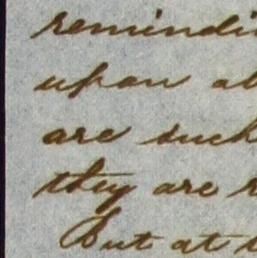 remindi
upon al
are such
they are r
But at t